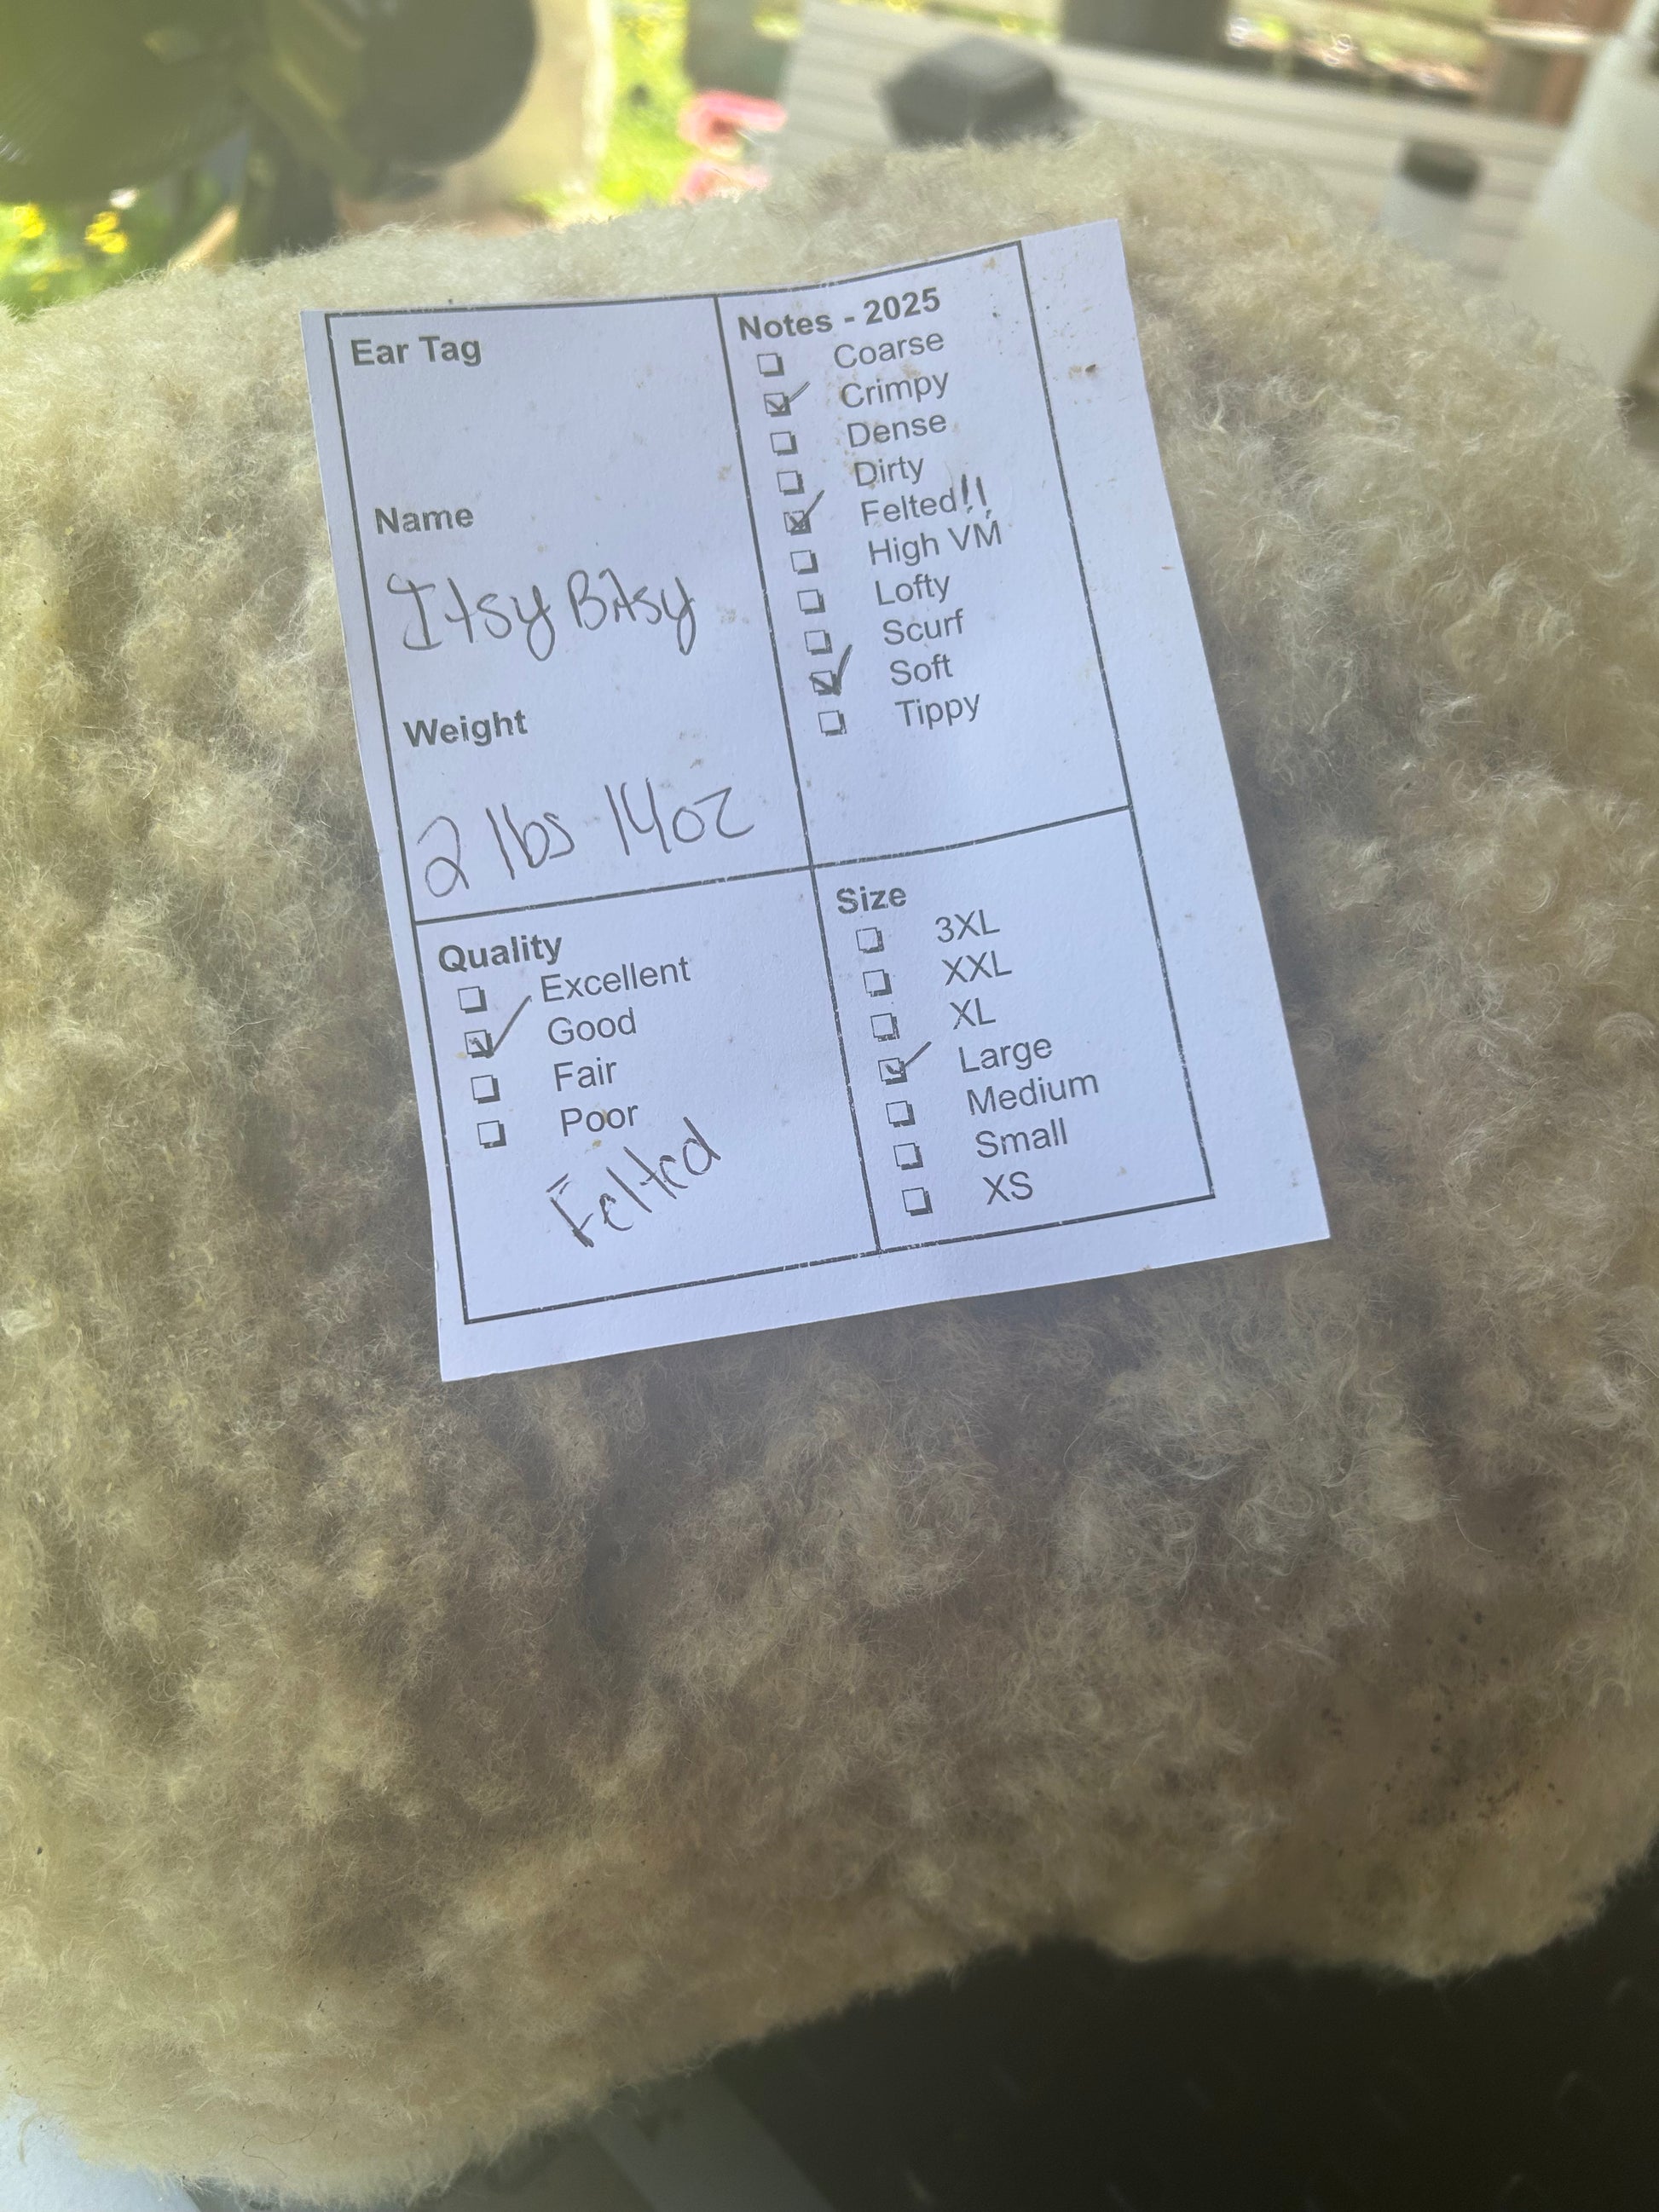 Ear Tag
Name
Itsy Bitsy
Weight
2 lbs 14oz
Notes - 2025
❏ Coarse
☑ Crimpy
❏ Dense
❏ Dirty
☑ Felted!!
❏ High VM
❏ Lofty
❏ Scurf
☑ Soft
❏ Tippy
Quality
❏ Excellent
☑ Good
❏ Fair
❏ Poor
Felted
Size
❏ 3XL
❏ XXL
❏ XL
☑ Large
❏ Medium
❏ Small
❏ XS